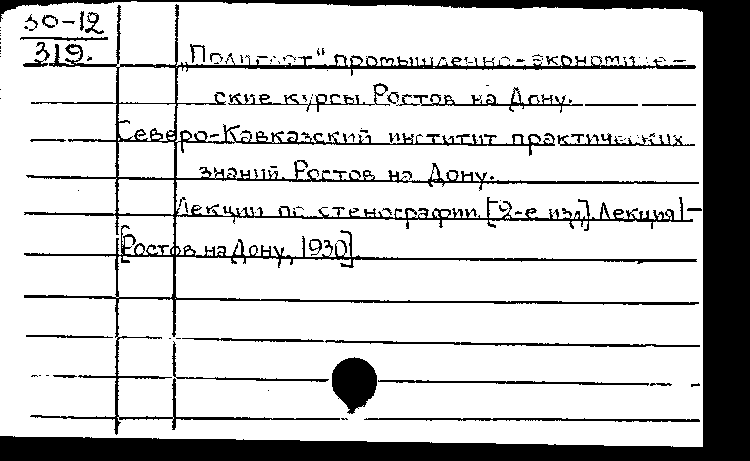 30-12
319.
„Полиглот“ промышленно-экономиче-
ские курсы. Ростов на Дону.
Северо-Кавказский институт практических
знаний. Ростов на Дону.
Лекции по стенографии. [2-е изд]. Лекция 1-
[Ростов на Дону, 1930].